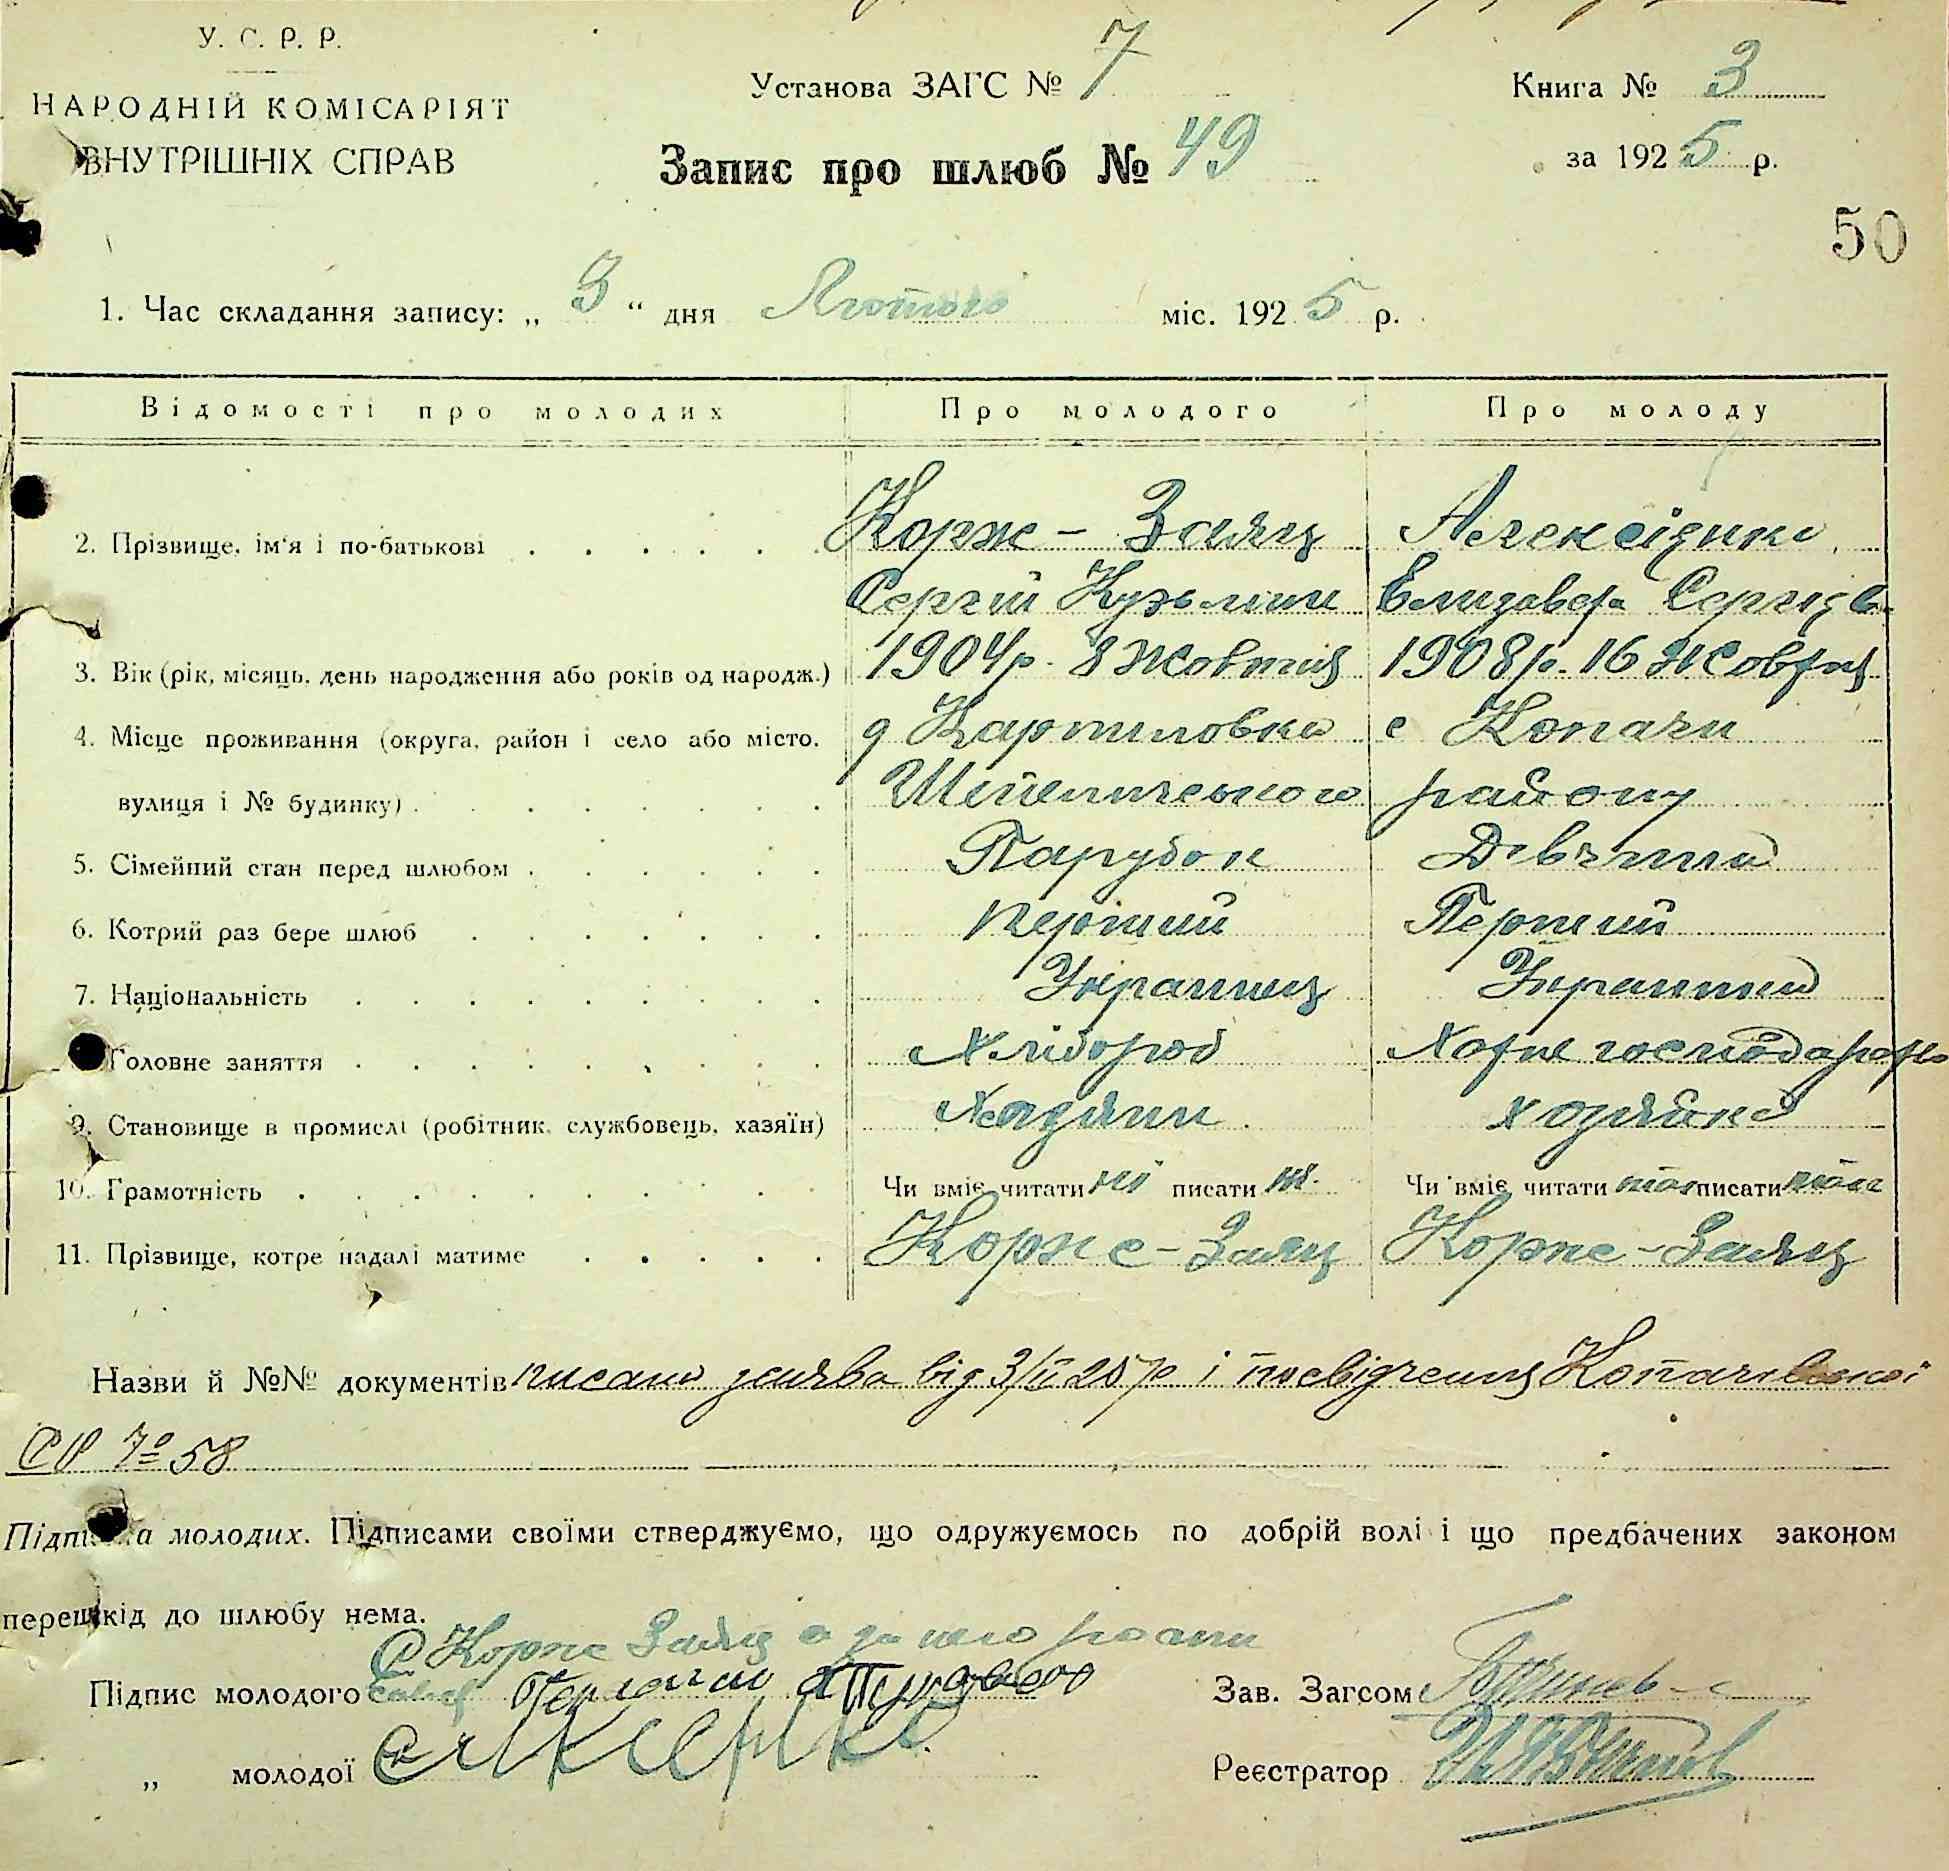 У. С. Р. Р.
НАРОДНІЙ КОМІСАРІЯТ
ВНУТРІШНІХ СПРАВ
Установа ЗАГС № 7
Запис про шлюб № 49
Книга № 3
за 1925 р.
50
1. Час складання запису: „ 3 “ дня Лютого міс. 1925 р.
Відомості про молодих Про молодого Про молоду
2. Прізвище, ім'я і по-батькові Корж - Заяць Алексієнко
Сергій Кузьмин Елизавета Сергієв.
3. Вік (рік, місяць, день народження або років од народж.) 1904р. 8 Жовтня 1908р. 16 Жовтня
4. Місце проживання (округа, район і село або місто, д Карпиловка с Копачи
вулиця і № будинку) Шепеличського району
5. Сімейний стан перед шлюбом Парубок Дівчина
6. Котрий раз бере шлюб перший Перший
7. Національність Украинец Украинка
Головне заняття Хлібороб Хатне господарство
9. Становище в промислі (робітник, службовець, хазяїн) Хазяин хозяйка
10. Грамотність Чи вміє читати ні писати ні Чи вміє читати писати
11. Прізвище, котре надалі матиме Корж-Заяць Корж-Заяць
Назви й №№ документів писана заява від 3/II 25р і посвідчення Копачівської
СР № 58
Підписка молодих. Підписами своїми стверджуємо, що одружуємось по добрій волі і що предбачених законом
перешкід до шлюбу нема.
С Корж Заяць а за него роспи
Підпис молодого
„ молодої
Зав. Загсом
Реєстратор